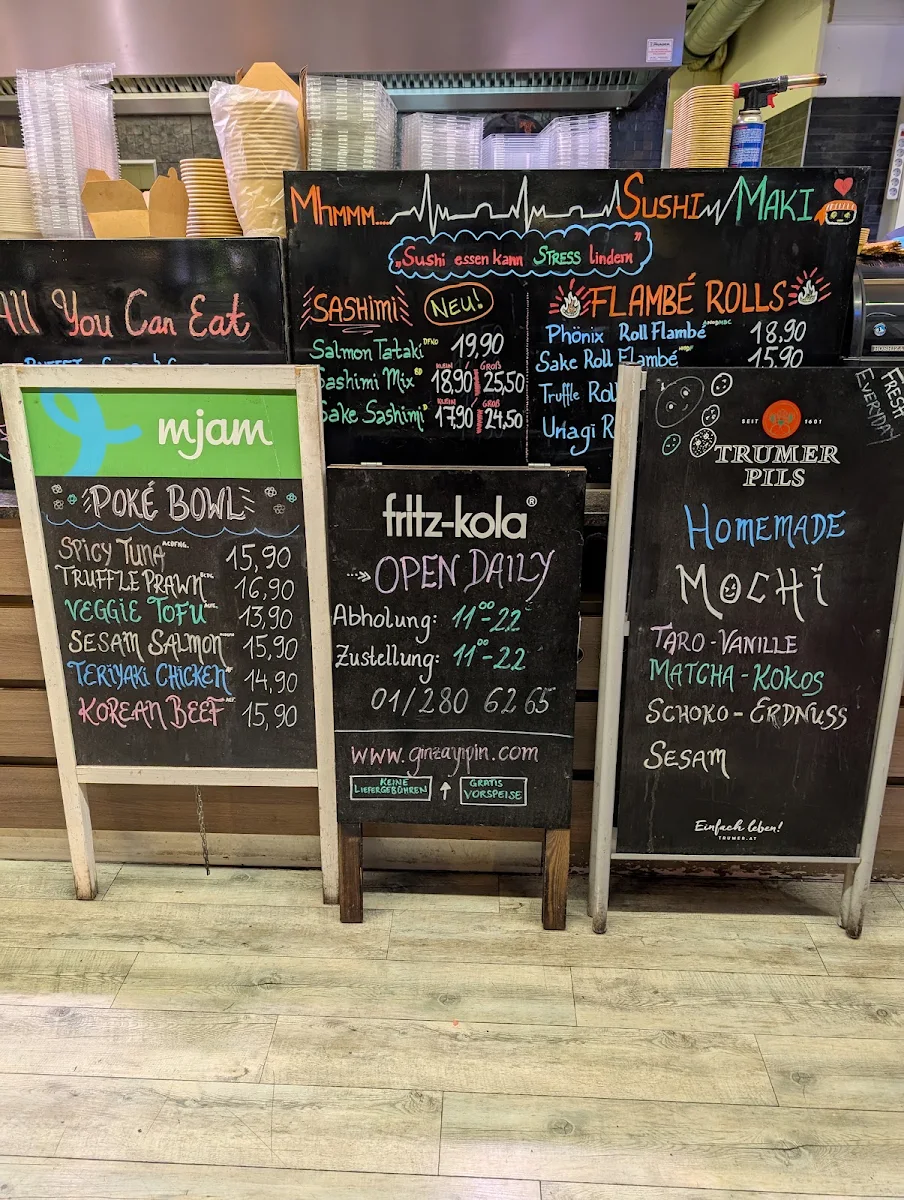 Mhmmm.... Sushi Maki
„Sushi essen kann Stress lindern"
All You Can Eat
Sashimi Neu!
Salmon Tataki DFNO 19,90
klein groß
Sashimi Mix 18,90 25,50
klein groß
Sake Sashimi D 17,90 24,50
Flambé Rolls
Phönix Roll Flambé 18,90
Sake Roll Flambé 15,90
Truffle Rol
Unagi R
mjam
Poké Bowl
Spicy Tuna 15,90
Truffle Prawn 16,90
Veggie Tofu 13,90
Sesam Salmon 15,90
Teriyaki Chicken 14,90
Korean Beef 15,90
fritz-kola®
Open Daily
Abholung: 11⁰⁰-22
Zustellung: 11⁰⁰-22
01/280 62 65
www.ginzayipin.com
Keine Liefergebühren
Gratis Vorspeise
Fresh Everyday
SEIT 1601
TRUMER
PILS
Homemade
Mochi
Taro-Vanille
Matcha-Kokos
Schoko-Erdnuss
Sesam
Einfach leben!
TRUMER.AT